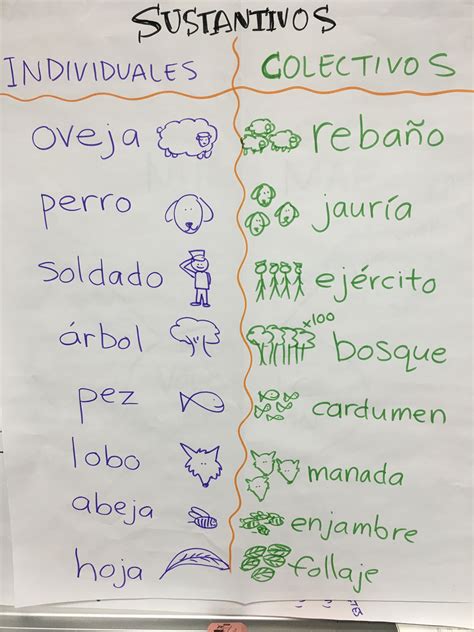 SUSTANTIVOS
INDIVIDUALES COLECTIVOS
oveja rebaño
perro jauría
soldado ejército
árbol x100 bosque
pez cardumen
lobo manada
abeja enjambre
hoja follaje